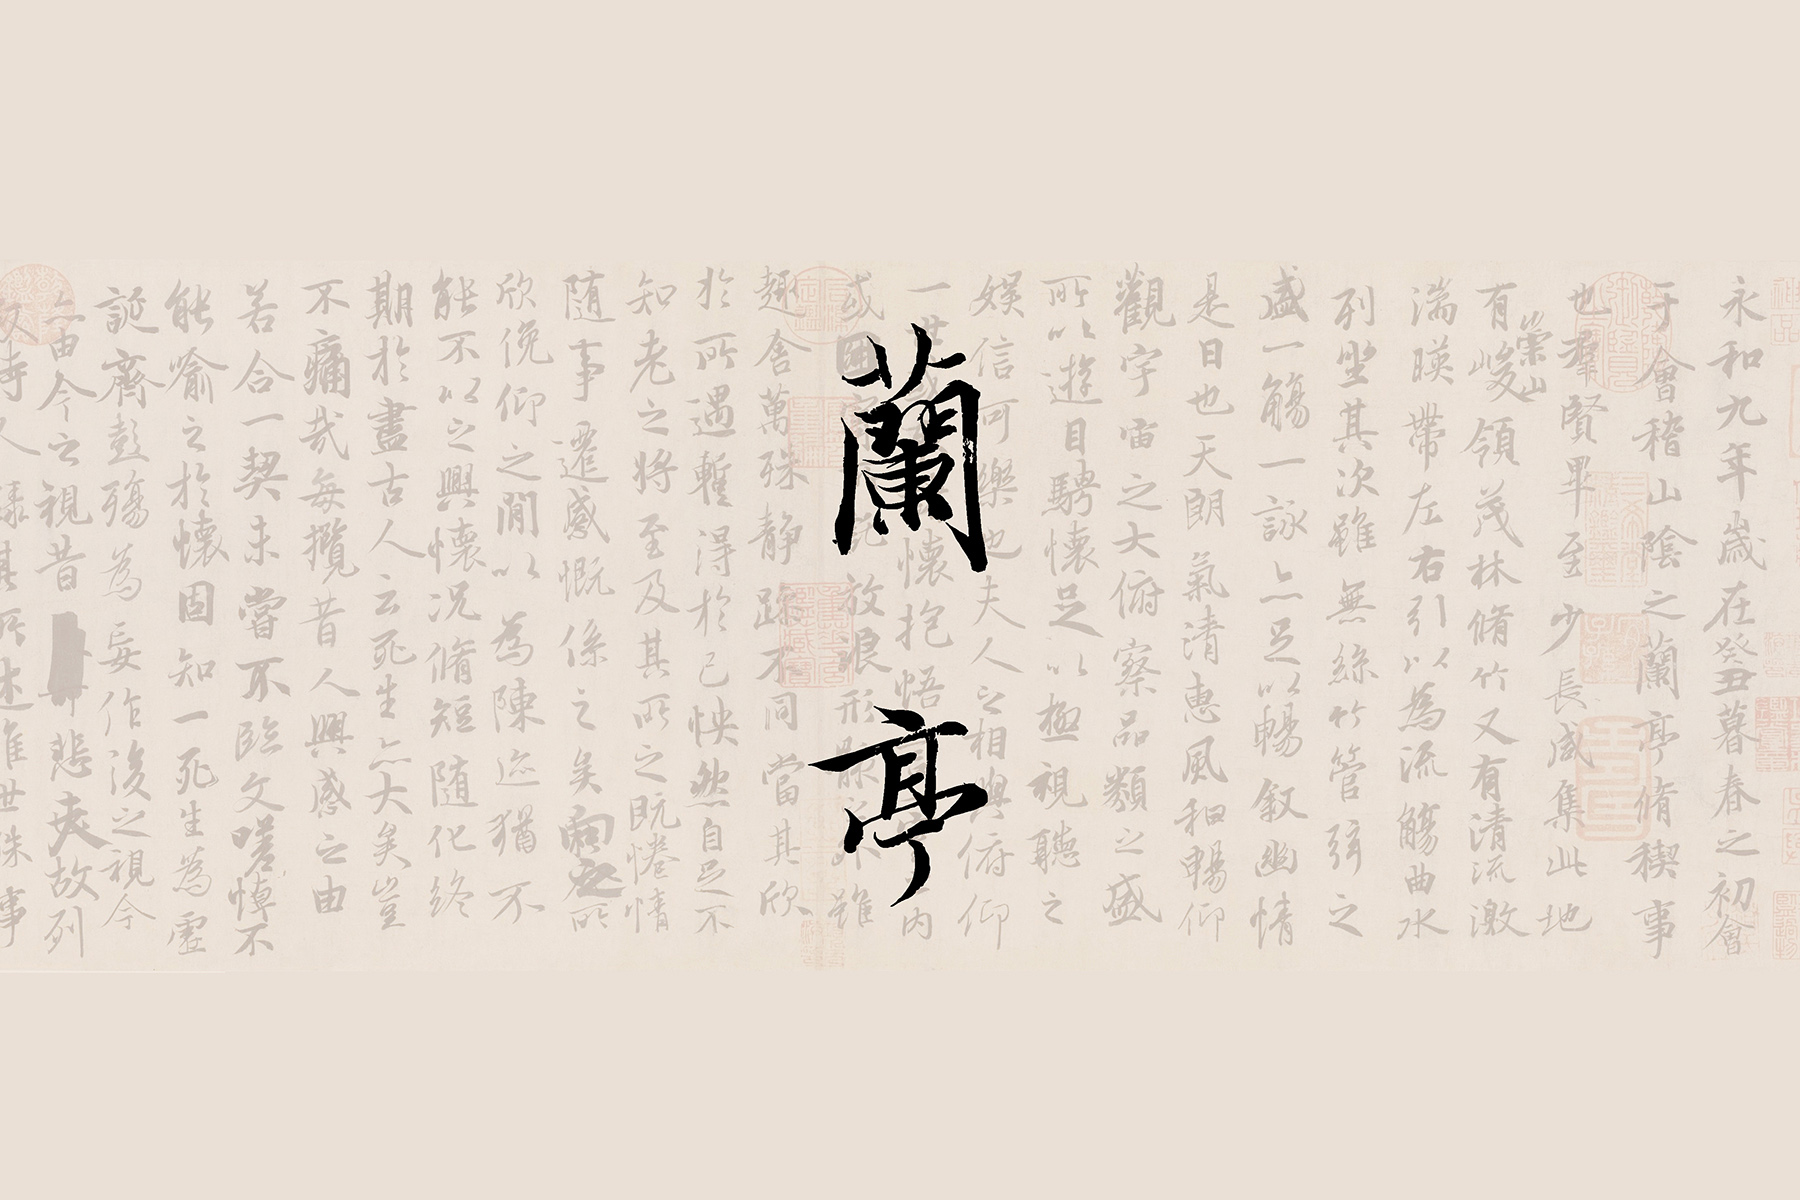 蘭亭
永和九年歲在癸丑暮春之初會
于會稽山陰之蘭亭脩稧事
也羣賢畢至少長咸集此地
有崇山峻領茂林脩竹又有清流激
湍暎帶左右引以為流觴曲水
列坐其次雖無絲竹管弦之
盛一觴一詠亦足以暢叙幽情
是日也天朗氣清惠風和暢仰
觀宇宙之大俯察品類之盛
所以遊目騁懷足以極視聽之
娛信可樂也夫人之相與俯仰
一世懷抱悟內
或因放浪形骸雖
趣舍萬殊静躁不同當其欣
於所遇暫得於己怏然自足不
知老之將至及其所之既惓情
隨事遷感慨係之矣向之所
欣俛仰之閒以為陳迹猶不
能不以之興懷況脩短隨化終
期於盡古人云死生亦大矣豈
不痛哉每攬昔人興感之由
若合一契未嘗不臨文嗟悼不
能喻之於懷固知一死生為虛
誕齊彭殤為妄作後之視今
亦由今之視昔悲夫故列
敘時人錄其所述雖世殊事